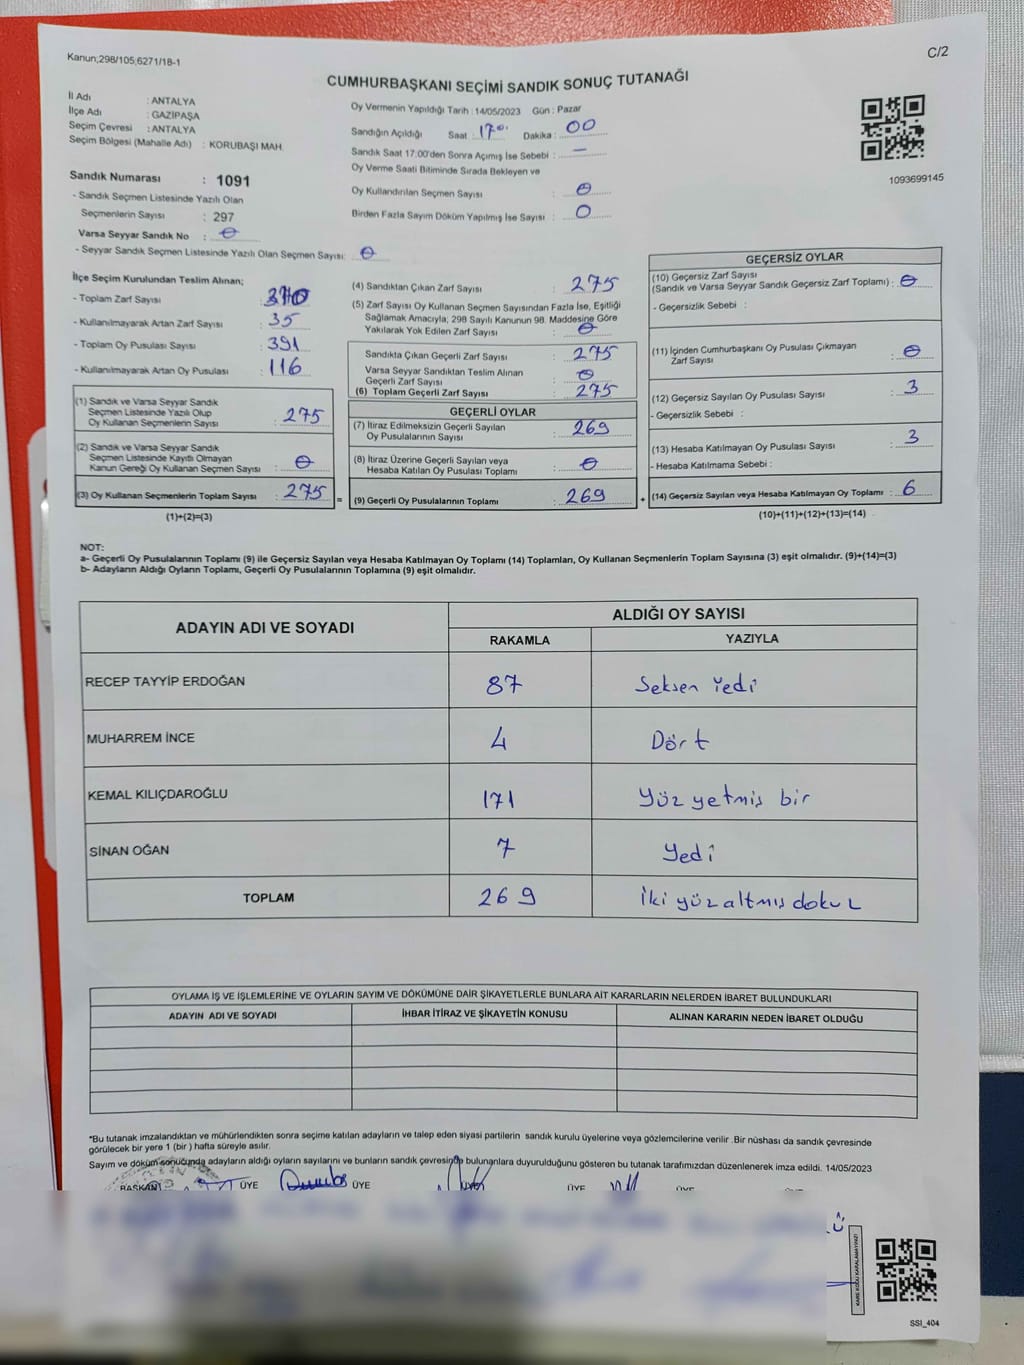 Kanun;298/105;6271/18-1
C/2
CUMHURBAŞKANI SEÇİMİ SANDIK SONUÇ TUTANAĞI
İl Adı : ANTALYA
İlçe Adı : GAZİPAŞA
Seçim Çevresi : ANTALYA
Seçim Bölgesi (Mahalle Adı) : KORUBAŞI MAH.
Sandık Numarası : 1091
- Sandık Seçmen Listesinde Yazılı Olan
Seçmenlerin Sayısı : 297
Varsa Seyyar Sandık No : 0
- Seyyar Sandık Seçmen Listesinde Yazılı Olan Seçmen Sayısı: 0
Oy Vermenin Yapıldığı Tarih : 14/05/2023 Gün : Pazar
Sandığın Açıldığı Saat : 17 Dakika : 00
Sandık Saat 17:00'den Sonra Açımış İse Sebebi : —
Oy Verme Saati Bitiminde Sırada Bekleyen ve
Oy Kullandırılan Seçmen Sayısı : 0
Birden Fazla Sayım Döküm Yapılmış İse Sayısı : 0
1093699145
İlçe Seçim Kurulundan Teslim Alınan;
- Toplam Zarf Sayısı
- Kullanılmayarak Artan Zarf Sayısı : 35
- Toplam Oy Pusulası Sayısı : 391
- Kullanılmayarak Artan Oy Pusulası : 116
(1) Sandık ve Varsa Seyyar Sandık
Seçmen Listesinde Yazılı Olup
Oy Kullanan Seçmenlerin Sayısı : 275
(2) Sandık ve Varsa Seyyar Sandık
Seçmen Listesinde Kayıtlı Olmayan
Kanun Gereği Oy Kullanan Seçmen Sayısı : 0
(3) Oy Kullanan Seçmenlerin Toplam Sayısı : 275 =
(1)+(2)=(3)
(4) Sandıktan Çıkan Zarf Sayısı : 275
(5) Zarf Sayısı Oy Kullanan Seçmen Sayısından Fazla İse, Eşitliği
Sağlamak Amacıyla; 298 Sayılı Kanunun 98. Maddesine Göre
Yakılarak Yok Edilen Zarf Sayısı : 0
Sandıkta Çıkan Geçerli Zarf Sayısı : 275
Varsa Seyyar Sandıktan Teslim Alınan
Geçerli Zarf Sayısı : 0
(6) Toplam Geçerli Zarf Sayısı : 275
GEÇERLİ OYLAR
(7) İtiraz Edilmeksizin Geçerli Sayılan
Oy Pusulalarının Sayısı : 269
(8) İtiraz Üzerine Geçerli Sayılan veya
Hesaba Katılan Oy Pusulası Toplamı : 0
(9) Geçerli Oy Pusulalarının Toplamı : 269 +
GEÇERSİZ OYLAR
(10) Geçersiz Zarf Sayısı
(Sandık ve Varsa Seyyar Sandık Geçersiz Zarf Toplamı) : 0
- Geçersizlik Sebebi :
(11) İçinden Cumhurbaşkanı Oy Pusulası Çıkmayan
Zarf Sayısı : 0
(12) Geçersiz Sayılan Oy Pusulası Sayısı : 3
- Geçersizlik Sebebi :
(13) Hesaba Katılmayan Oy Pusulası Sayısı : 3
- Hesaba Katılmama Sebebi :
(14) Geçersiz Sayılan veya Hesaba Katılmayan Oy Toplamı : 6
(10)+(11)+(12)+(13)=(14)
NOT:
a- Geçerli Oy Pusulalarının Toplamı (9) ile Geçersiz Sayılan veya Hesaba Katılmayan Oy Toplamı (14) Toplamları, Oy Kullanan Seçmenlerin Toplam Sayısına (3) eşit olmalıdır. (9)+(14)=(3)
b- Adayların Aldığı Oyların Toplamı, Geçerli Oy Pusulalarının Toplamına (9) eşit olmalıdır.
ADAYIN ADI VE SOYADI
ALDIĞI OY SAYISI
RAKAMLA YAZIYLA
RECEP TAYYİP ERDOĞAN 87 Seksen Yedi
MUHARREM İNCE 4 Dört
KEMAL KILIÇDAROĞLU 171 Yüz yetmiş bir
SİNAN OĞAN 7 Yedi
TOPLAM 269 İki yüz altmış dokuz
OYLAMA İŞ VE İŞLEMLERİNE VE OYLARIN SAYIM VE DÖKÜMÜNE DAİR ŞİKAYETLERLE BUNLARA AİT KARARLARIN NELERDEN İBARET BULUNDUKLARI
ADAYIN ADI VE SOYADI İHBAR İTİRAZ VE ŞİKAYETİN KONUSU ALINAN KARARIN NEDEN İBARET OLDUĞU
*Bu tutanak imzalandıktan ve mühürlendikten sonra seçime katılan adayların ve talep eden siyasi partilerin sandık kurulu üyelerine veya gözlemcilerine verilir .Bir nüshası da sandık çevresinde
görülecek bir yere 1 (bir ) hafta süreyle asılır.
Sayım ve döküm sonucunda adayların aldığı oyların sayılarını ve bunların sandık çevresinde bulunanlara duyurulduğunu gösteren bu tutanak tarafımızdan düzenlenerek imza edildi. 14/05/2023
BAŞKAN ÜYE ÜYE ÜYE ÜYE ÜYE
KARE KODU KARALAMAYINIZ!
SSI_404